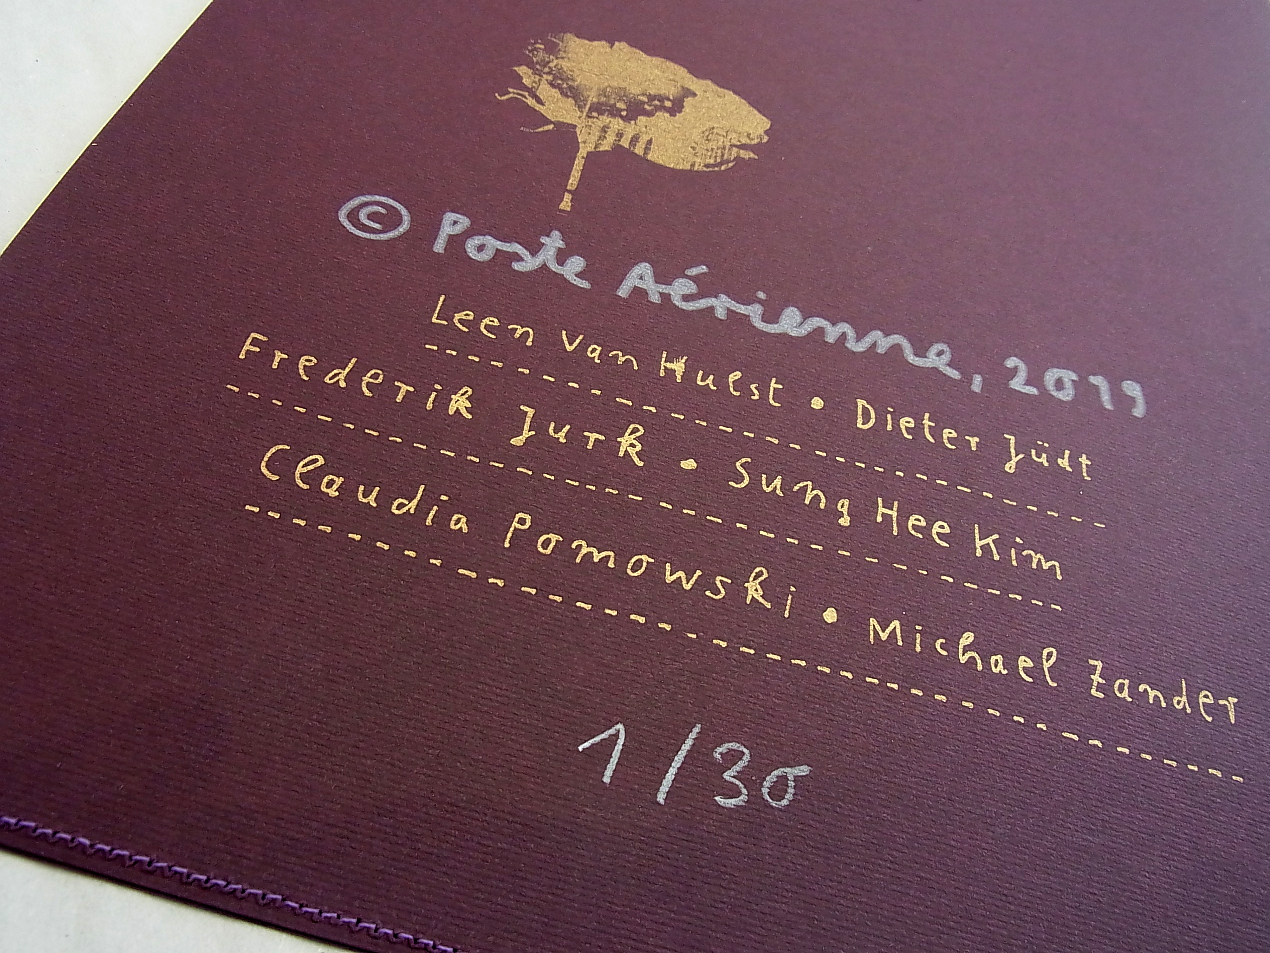 © Poste Aérienne, 2019
Leen van Hulst • Dieter Jüdt
Frederik Jurk • Sung Hee Kim
Claudia Pomowski • Michael Zander
1/30